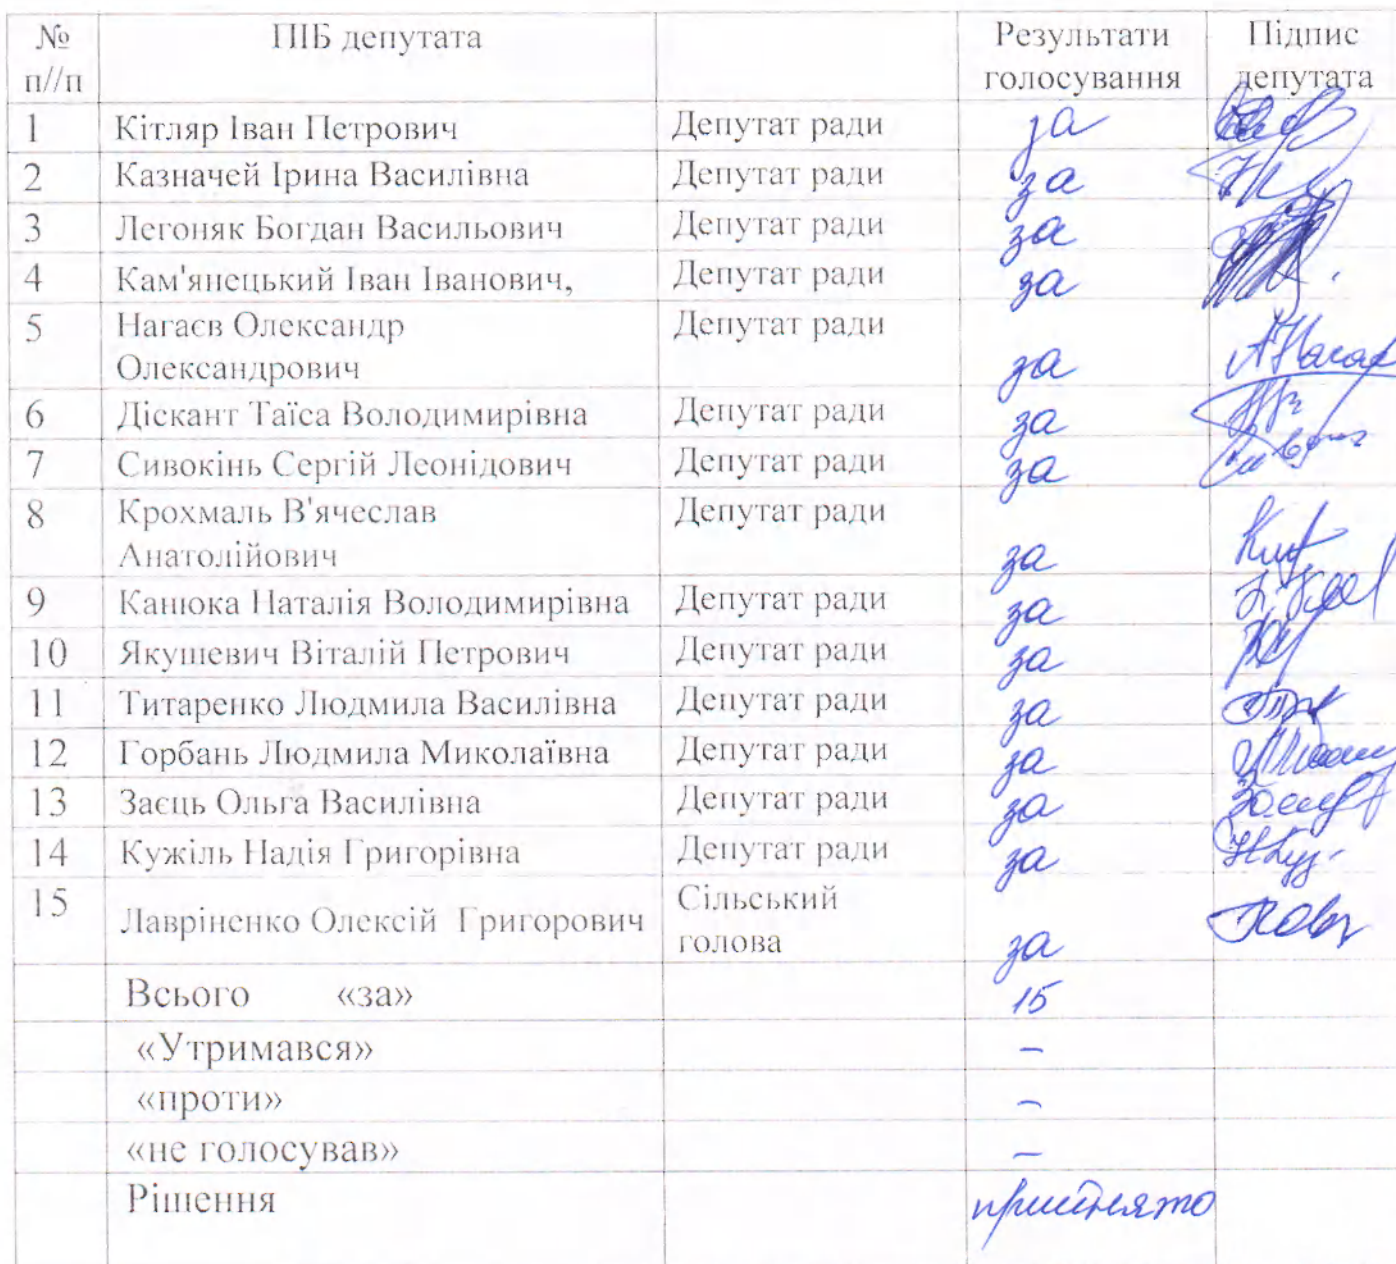 № ПІБ депутата Результати Підпис
п//п голосування депутата
1 Кітляр Іван Петрович Депутат ради за
2 Казначей Ірина Василівна Депутат ради за
3 Легоняк Богдан Васильович Депутат ради за
4 Кам'янецький Іван Іванович, Депутат ради за
5 Нагаєв Олександр Депутат ради
Олександрович за
6 Діскант Таїса Володимирівна Депутат ради за
7 Сивокінь Сергій Леонідович Депутат ради за
8 Крохмаль В'ячеслав Депутат ради
Анатолійович за
9 Канюка Наталія Володимирівна Депутат ради за
10 Якушевич Віталій Петрович Депутат ради за
11 Титаренко Людмила Василівна Депутат ради за
12 Горбань Людмила Миколаївна Депутат ради за
13 Заєць Ольга Василівна Депутат ради за
14 Кужіль Надія Григорівна Депутат ради за
15 Лавріненко Олексій Григорович Сільський
голова за
Всього «за» 15
«Утримався» –
«проти» –
«не голосував» –
Рішення прийнято